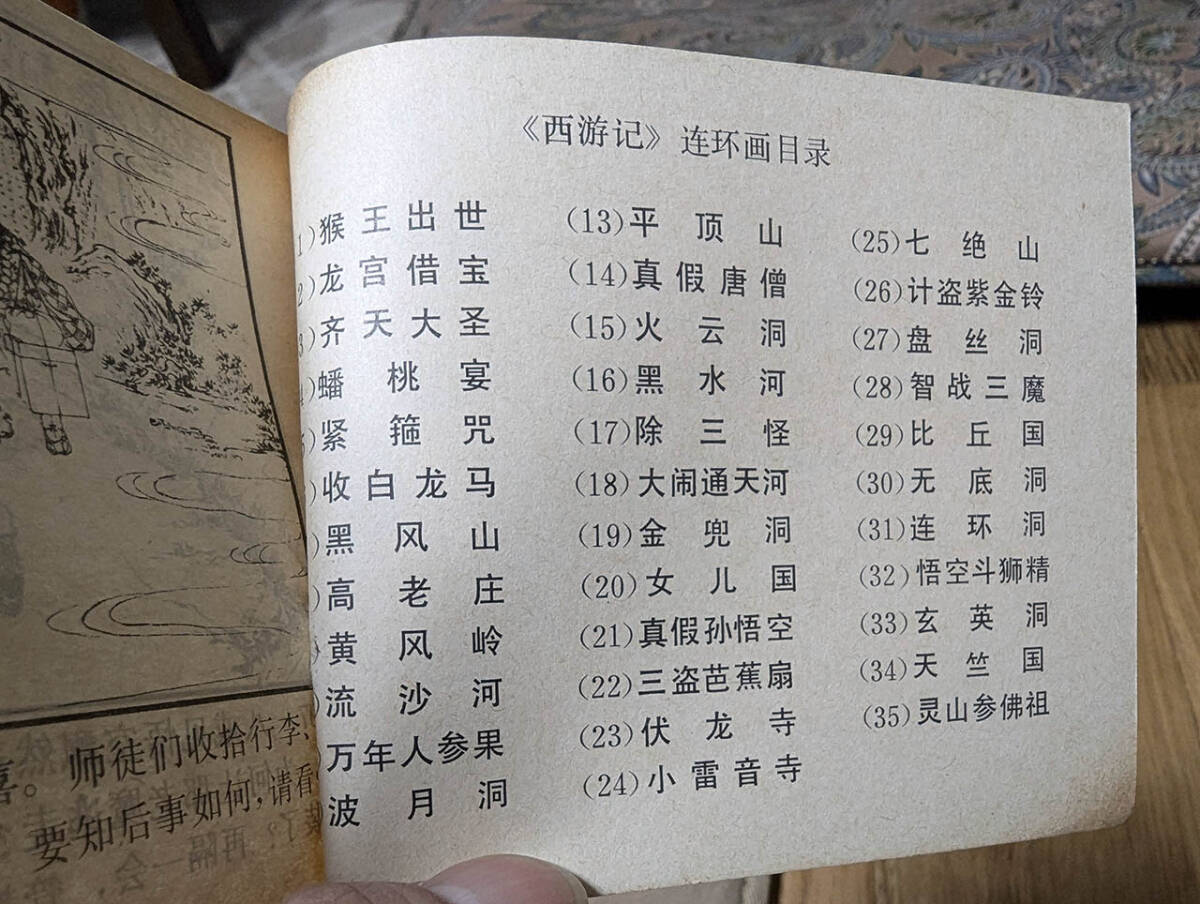 《西游记》连环画目录
1)猴王出世
2)龙宫借宝
3)齐天大圣
4)蟠桃宴
5)紧箍咒
)收白龙马
)黑风山
)高老庄
)黄风岭
)流沙河
)万年人参果
)波月洞
(13)平顶山
(14)真假唐僧
(15)火云洞
(16)黑水河
(17)除三怪
(18)大闹通天河
(19)金兜洞
(20)女儿国
(21)真假孙悟空
(22)三盗芭蕉扇
(23)伏龙寺
(24)小雷音寺
(25)七绝山
(26)计盗紫金铃
(27)盘丝洞
(28)智战三魔
(29)比丘国
(30)无底洞
(31)连环洞
(32)悟空斗狮精
(33)玄英洞
(34)天竺国
(35)灵山参佛祖
喜。师徒们收拾行李、
要知后事如何,请看